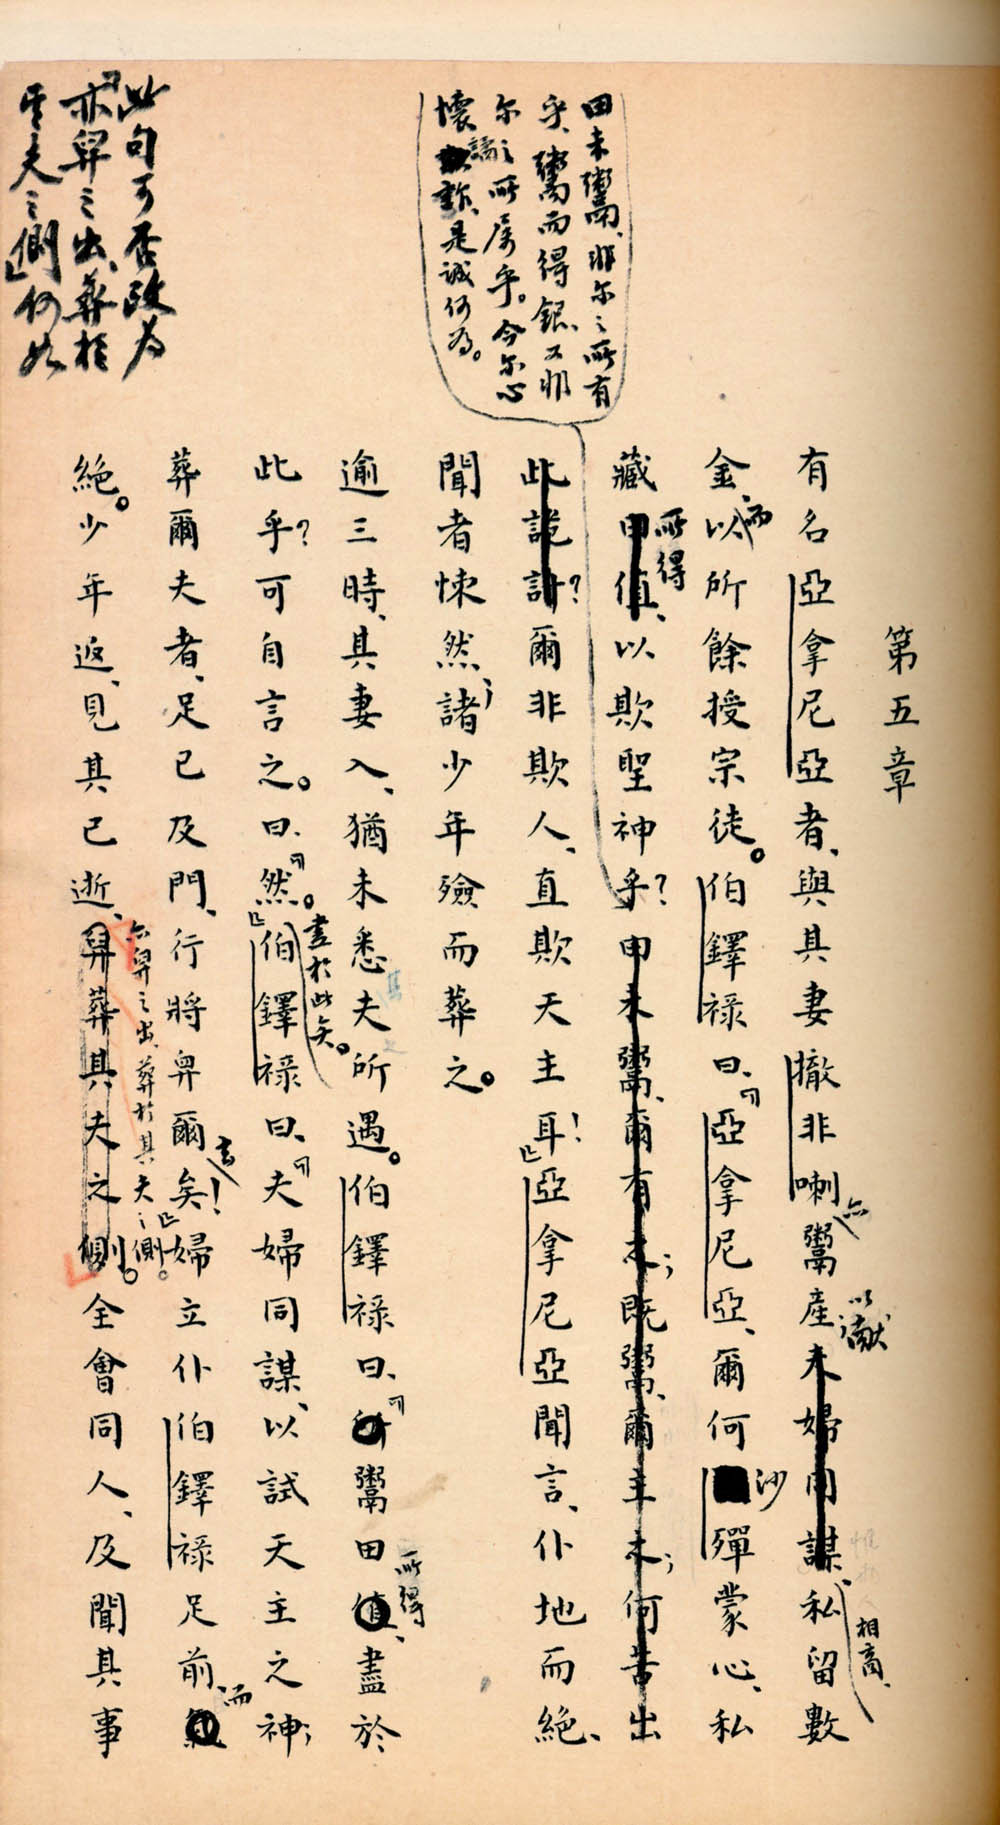 第五章
有名亞拿尼亞者、與其妻撒非喇鬻產夫婦同謀、私留數
亦
以獻
相商、
金、以所餘授宗徒。伯鐸祿曰、亞拿尼亞、爾何殫蒙心、私
而
沙
藏田值、以欺聖神乎?田未鬻、爾有之;既鬻、爾主之;何苦出
所得
田未鬻、非尔之所有
乎、鬻而得銀、又非
尔之所屬乎。今尔心
懷詐、是誠何為。
此詭計?爾非欺人、直欺天主耳!亞拿尼亞聞言、仆地而絕、
聞者悚然;諸少年殮而葬之。
逾三時、其妻入、猶未悉夫所遇。伯鐸祿曰、鬻田值、盡於
所得
此乎?可自言之。曰、然。伯鐸祿曰、夫婦同謀、以試天主之神;
盡於此矣。
葬爾夫者、足已及門、行將舁爾矣!婦立仆伯鐸祿足前、
而
絕。少年返、見其已逝、舁葬其夫之側。全會同人、及聞其事
亦舁之出、葬於其夫之側。
此句可否改為
「亦舁之出、葬於
其夫之側」何如